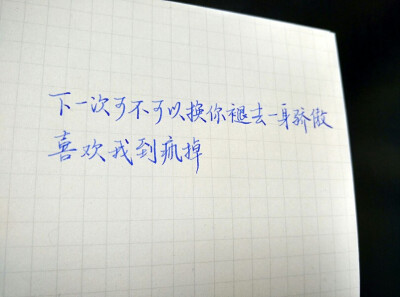 下一次可不可以换你褪去一身骄傲
喜欢我到疯掉